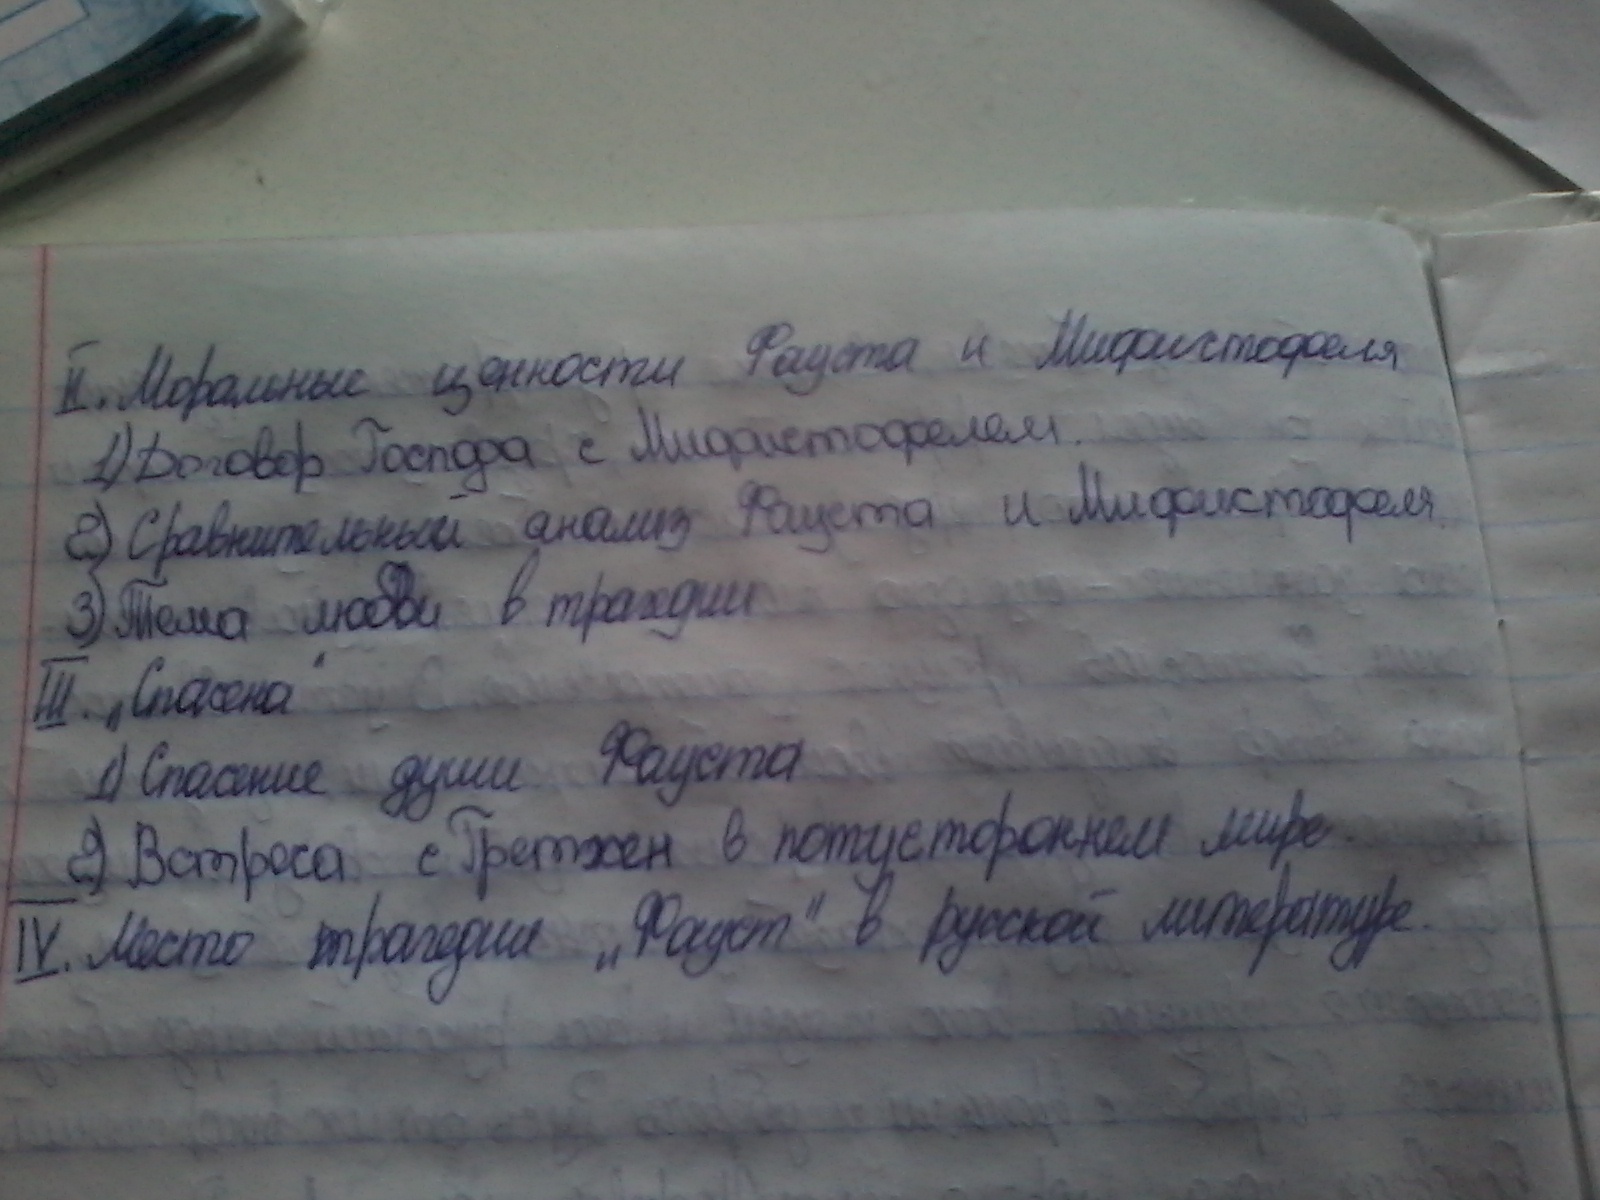 II. Моральные ценности Фауста и Мифистофеля
1) Договор Господа с Мифистофелем.
2) Сравнительный анализ Фауста и Мифистофеля.
3) Тема любви в трагедии
III. „Спасена"
1) Спасение души Фауста
2) Встреса с Гретхен в потустороннем мире.
IV. Место трагедии „Фауст" в русской литературе.